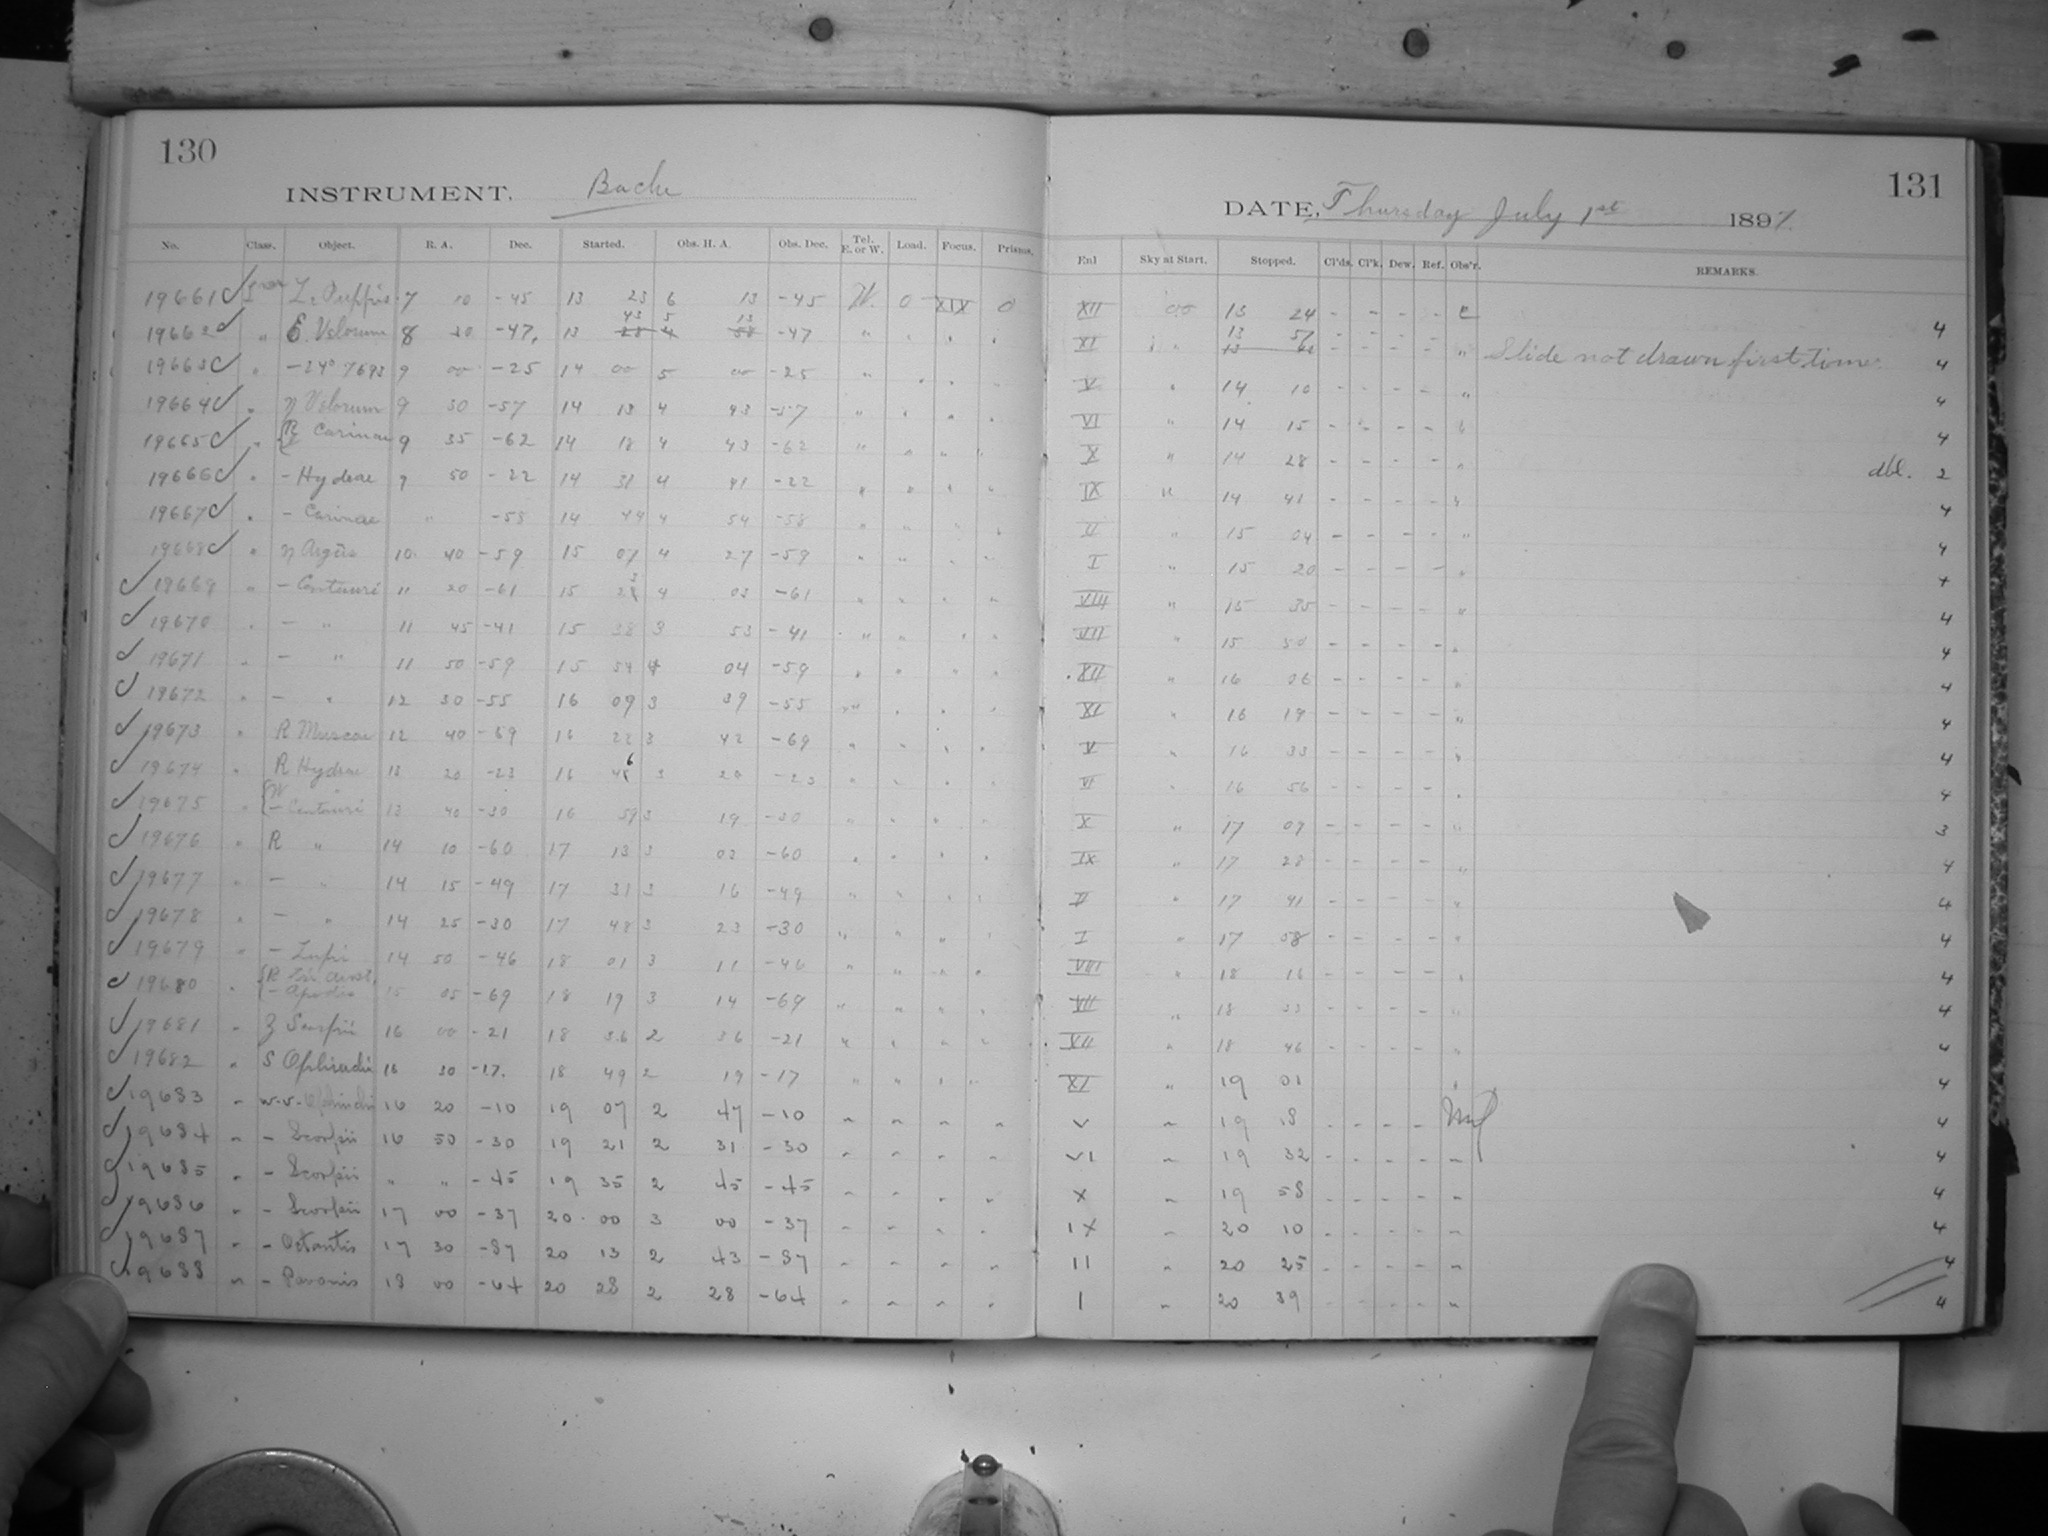 130
INSTRUMENT, Bache
No. Class. Object. R. A. Dec. Started. Obs. H. A. Obs. Dec. Tel. E. or W. Load. Focus. Prisms.
19661 L2 Puppis 7 10 -45 13 23 6 13 -45 W. 0 XIX 0
43 5 13
19662 " E Velorum 8 30 -47 13 28 4 58 -47 " " " "
19663 " -24° 7693 9 00 -25 14 00 5 00 -25 "
19664 " η Velorum 9 30 -57 14 13 4 43 -57 "
19665 " R Z Carinae 9 35 -62 14 18 4 43 -62 " " " "
19666 " - Hydrae 9 50 -22 14 31 4 41 -22 " " " "
19667 " - Carinae " -58 14 44 4 54 -58 " " " "
19668 " η Argûs 10 40 -59 15 07 4 27 -59 " " " "
19669 " - Centauri 11 20 -61 15 23 4 03 -61 " " " "
19670 " - " 11 45 -41 15 38 3 53 -41 " " " "
19671 " - " 11 50 -59 15 54 4 04 -59 " " " "
19672 " - " 12 30 -55 16 09 3 39 -55 " " " "
19673 " R Muscae 12 40 -69 16 22 3 42 -69 " " " "
19674 " R Hydrae 13 20 -23 16 46 3 26 -23 " " " "
19675 " W - Centauri 13 40 -30 16 59 3 19 -30 " " " "
19676 " R " 14 10 -60 17 13 3 03 -60 " " " "
19677 " - " 14 15 -49 17 31 3 16 -49 " " " "
19678 " - " 14 25 -30 17 48 3 23 -30 " " " "
19679 " - Lupi 14 50 -46 18 01 3 11 -46 " " " "
19680 " R Tri. Aust. - Apodis 15 05 -69 18 19 3 14 -69 " " " "
19681 " Z Scorpii 16 00 -21 18 36 2 36 -21 " " " "
19682 " S Ophiuchi 16 30 -17 18 49 2 19 -17 " " " "
19683 " Ophiuchi 16 20 -10 19 07 2 47 -10 " " " "
19684 " - Scorpii 16 50 -30 19 21 2 31 -30 " " " "
19685 " - Scorpii " " -45 19 35 2 45 -45 " " " "
19686 " - Scorpii 17 00 -37 20 00 3 00 -37 " " " "
19687 " - Octantis 17 30 -87 20 13 2 43 -87 " " " "
19688 " - Pavonis 18 00 -64 20 28 2 28 -64 " " " "
131
DATE, Thursday July 1st 1897.
Enl Sky at Start. Stopped. Cl'ds. Cl'k. Dew. Ref. Obs'r. REMARKS.
XII 13 24 - - - - C 4
13 57
XI " - - - - " Slide not drawn first time 4
V " 14 10 - - - - " 4
VI " 14 15 - - - - " 4
X " 14 28 - - - - " dbl. 2
IX " 14 41 - - - - " 4
II " 15 04 - - - - " 4
I " 15 20 - - - - " 4
VIII " 15 35 - - - - " 4
VII " 15 50 - - - - " 4
XII " 16 06 - - - - " 4
XI " 16 19 - - - - " 4
V " 16 33 - - - - " 4
VI " 16 56 - - - - " 4
X " 17 09 - - - - " 3
IX " 17 28 - - - - " 4
II " 17 41 - - - - " 4
I " 17 58 - - - - " 4
VIII " 18 16 - - - - " 4
VII " 18 33 - - - - " 4
XII " 18 46 - - - - " 4
XI " 19 01 " 4
V " 19 18 - - - - 4
VI " 19 32 - - - - " 4
X " 19 58 - - - - " 4
IX " 20 10 - - - - " 4
II " 20 25 - - - - " 4
I " 20 39 - - - - " 4